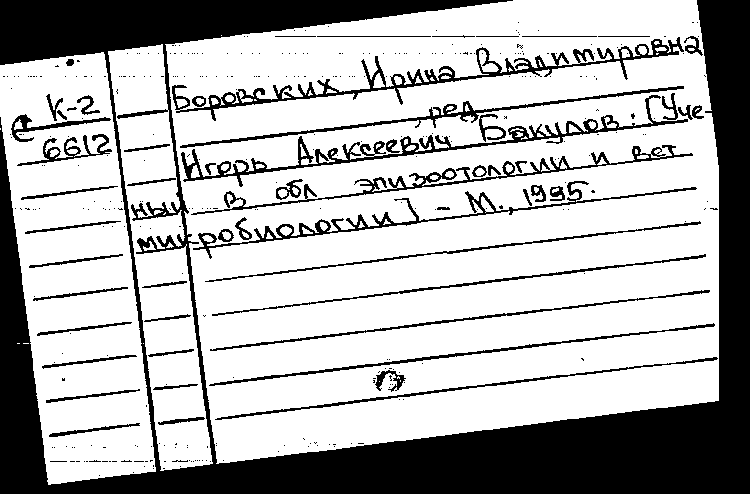 К-2
6612
Боровских, Ирина Владимировна
, ред
Игорь Алексеевич Бакулов: [Уче-
ный в обл эпизоотологии и вет
микробиологии] - М., 1995.